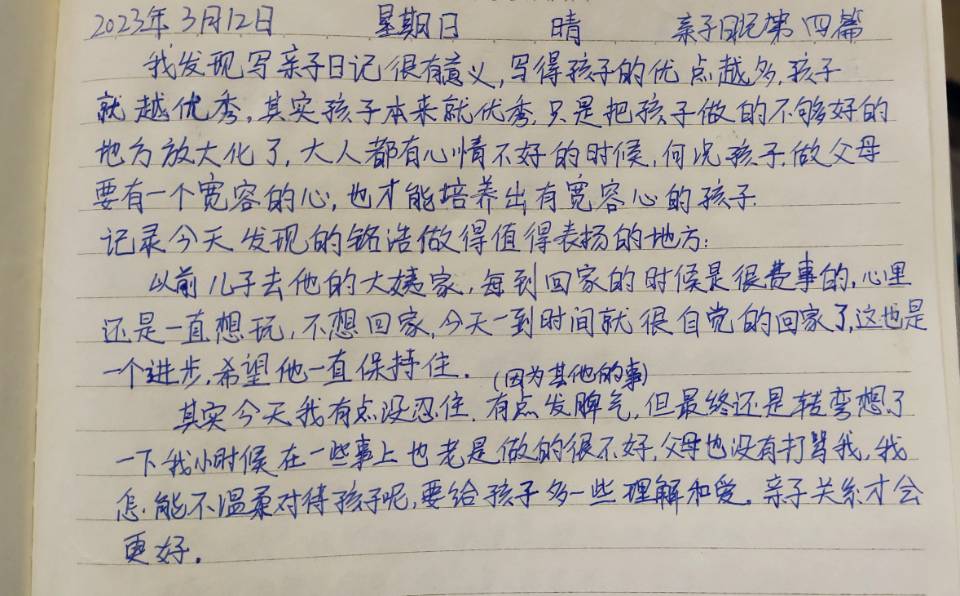 2023年3月12日 星期日 晴 亲子日记第四篇
我发现写亲子日记很有意义,写得孩子的优点越多,孩子
就越优秀,其实孩子本来就优秀,只是把孩子做的不够好的
地方放大化了,大人都有心情不好的时候,何况孩子,做父母
要有一个宽容的心,也才能培养出有宽容心的孩子.
记录今天发现的铭浩做得值得表扬的地方:
以前儿子去他的大姨家,每到回家的时候是很费事的,心里
还是一直想玩,不想回家,今天一到时间就很自觉的回家了,这也是
一个进步,希望他一直保持住.
(因为其他的事)
其实今天我有点没忍住,有点发脾气,但最终还是转弯想了
一下我小时候在一些事上也老是做的很不好,父母也没有打骂我,我
怎能不温柔对待孩子呢,要给孩子多一些理解和爱.亲子关系才会
更好.